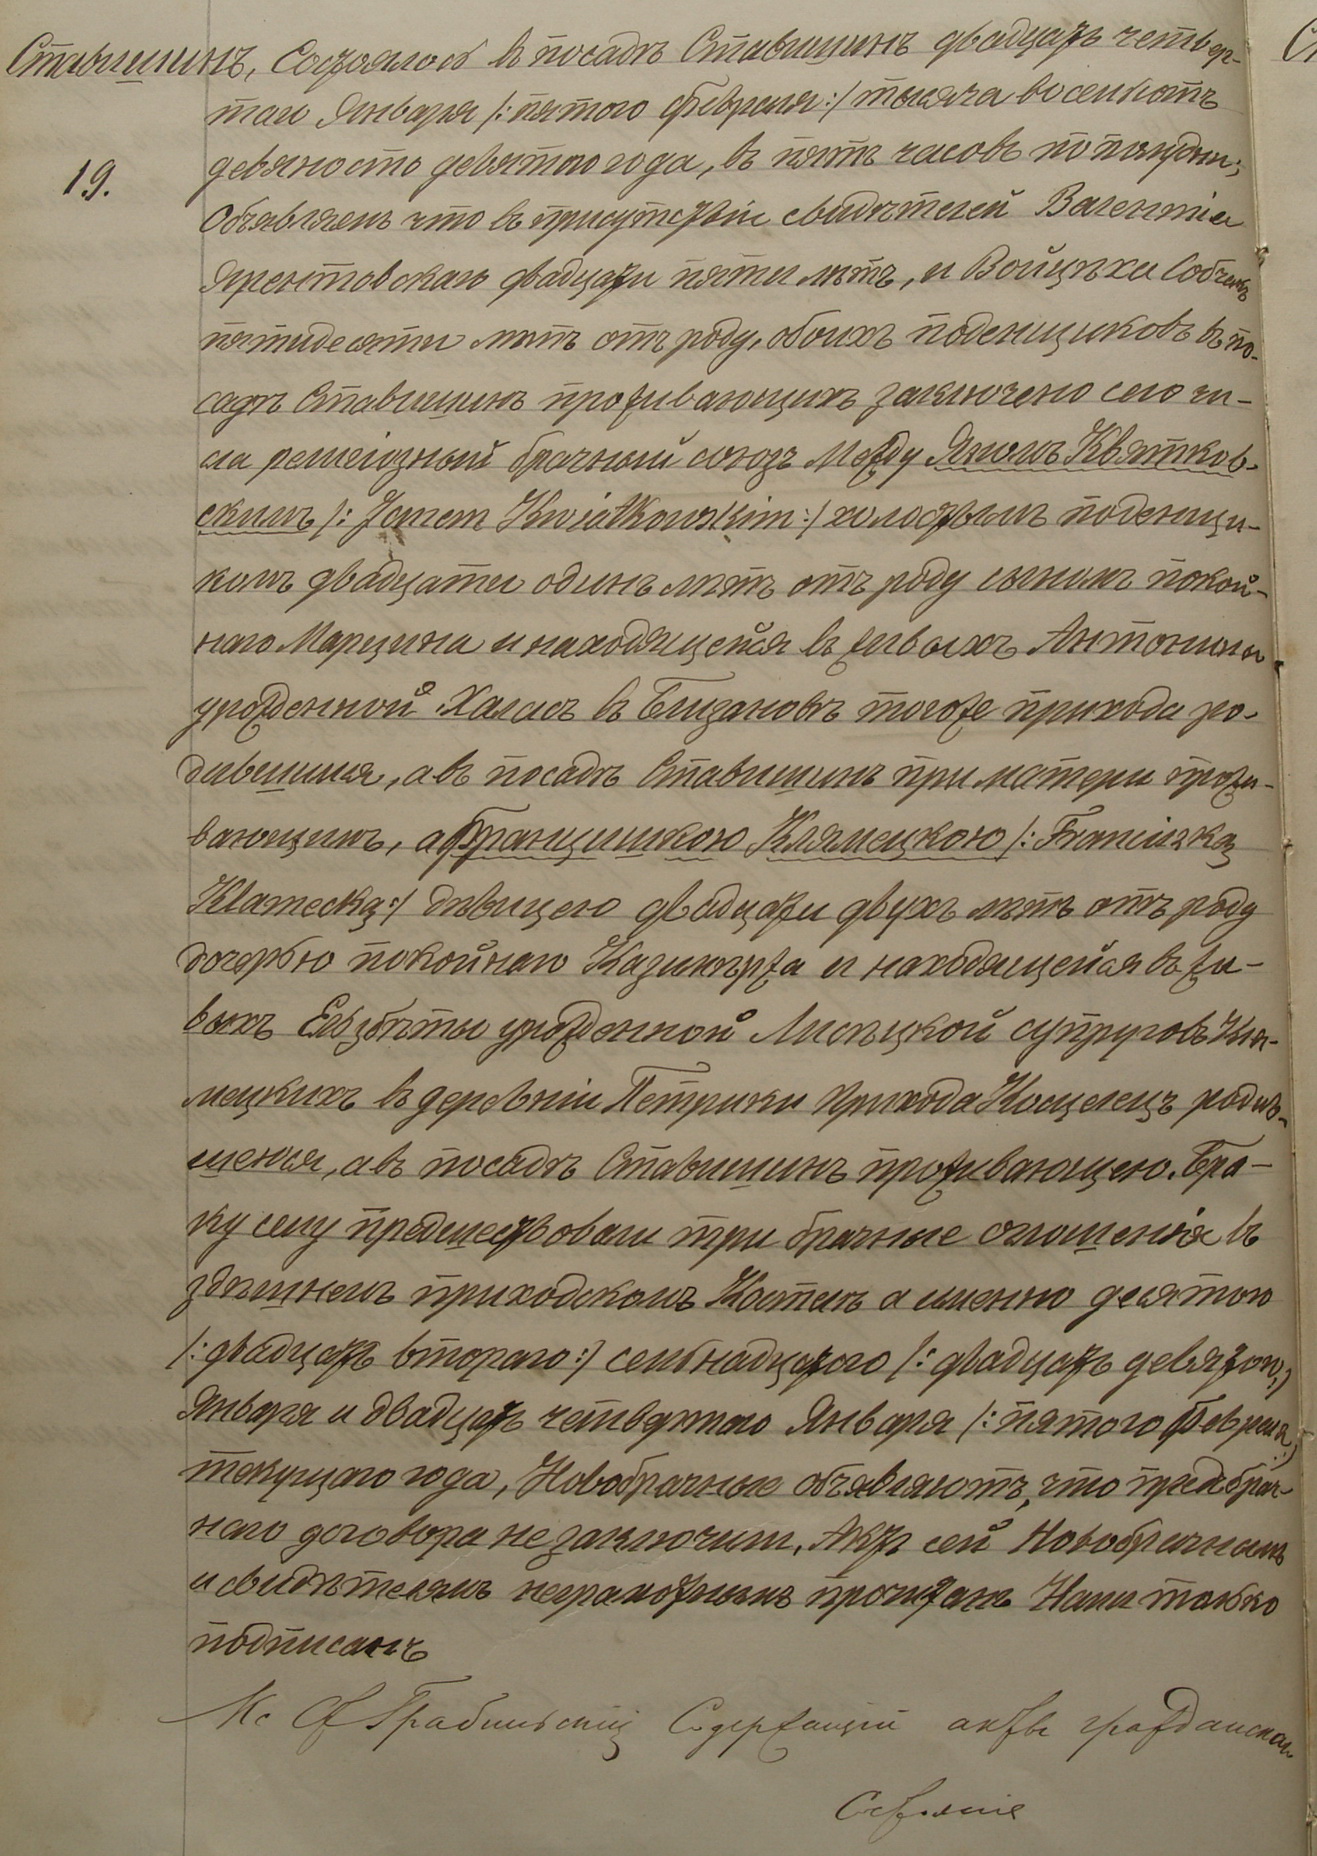 Ставишинъ, Состоялось въ посадѣ Ставишинѣ двадцать четвер-
таго Января /: пятого февраля :/ тысяча восемьсотъ
19.
девяносто девятаго года, въ пять часовъ по полудни;
Объявляемъ что въ присутствіи свидѣтелей Валентія
двадцати пяти лѣтъ, и Войцѣха
пятидесяти лѣтъ отъ роду, обоихъ поденщиковъ въ по-
садѣ Ставишинѣ проживающихъ заключено сего чи-
сла религіозный брачный союзъ между Яномъ Квятков-
скимъ /: Janem Kwiatkowskim :/ холостымъ поденщи-
комъ двадцати одинъ лѣтъ отъ роду сыномъ покой-
наго Марцина и находящейся въ живыхъ Антонины
урожденной Халасъ въ Близановѣ тогоже прихода ро-
дившимся, а въ посадѣ Ставишинѣ при матери прожи-
вающимъ, а Францишкою Клямецкою /: Franciszką
Klamecką :/ дѣвицею двадцати двухъ лѣтъ отъ роду
дочерью покойнаго Казимѣржа и находящейся въ жи-
выхъ Елизбѣты урожденной Лисѣцкой супруговъ Кля-
мецкихъ въ деревніи Петрики прихода Косцелецъ родив-
шеюся, а въ посадѣ Ставишинѣ проживающею. Бра-
ку сему предшествовали три брачные оглашенія въ
здѣшнемъ приходскомъ Костелѣ а именно десятого
/: двадцать второго :/ семьнадцатого /: двадцать девятого :/
Января и двадцать четвертаго Января /: пятого Февраля :/
текущаго года, Новобрачные объявляютъ, что предбрач-
наго договора не заключили. Актъ сей Новобрачнымъ
и свидѣтелямъ неграмотнымъ прочитанъ Нами только
подписанъ
Кс Грабинскій Содержащій акты гражданскаго
Состоянія